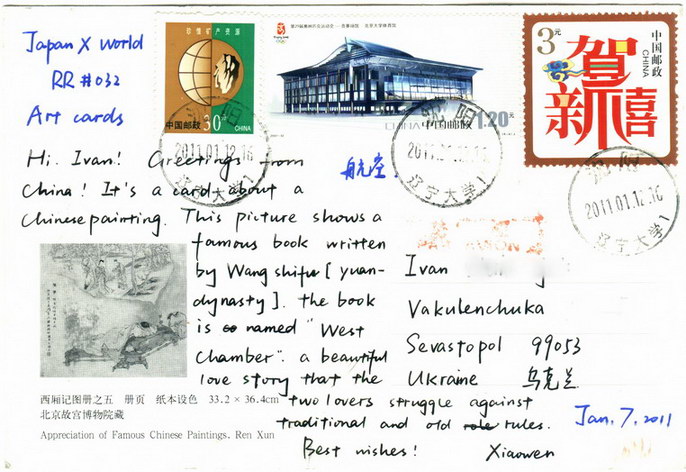 Japan X world
RR #032
Art cards
珍惜矿产资源
中国邮政 30分 CHINA
第29届奥林匹克运动会——竞赛场馆 北京大学体育馆
CHINA 中国邮政 1.20元
3元
中国邮政
CHINA
贺新禧
沈阳
2011.01.12.16
辽宁大学1
沈阳
辽宁大学1
沈阳
2011.01.12.16
辽宁大学1
航空
PAR AVION
Hi. Ivan! Greetings from
China! It's a card about a
Chinese painting. This picture shows a
famous book written
by Wang shifu [yuan-
dynasty]. the book
is named "West
Chamber". a beautiful
love story that the
two lovers struggle against
traditional and old rules.
Best wishes! Xiaowen
Ivan
Vakulenchuka
Sevastopol 99053
Ukraine 乌克兰
Jan. 7. 2011
西厢记图册之五 册页 纸本设色 33.2 × 36.4cm
北京故宫博物院藏
Appreciation of Famous Chinese Paintings. Ren Xun